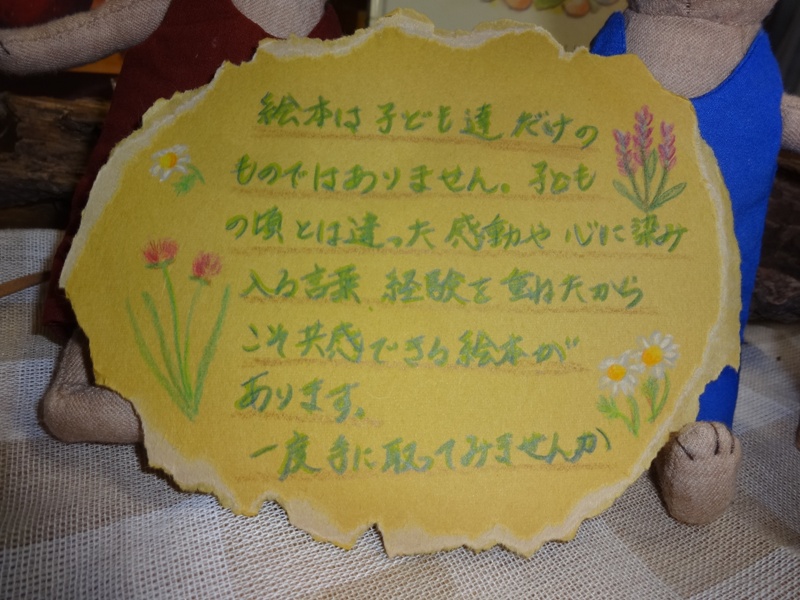 絵本は子ども達だけの
ものではありません。子ども
の頃とは違った感動や心に染み
入る言葉 経験を重ねたから
こそ共感できる絵本が
あります。
一度手に取ってみませんか